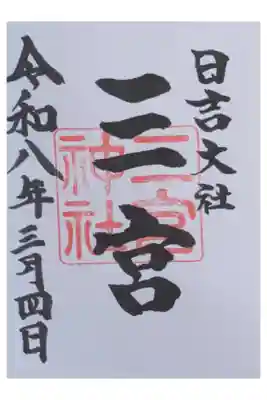 日吉大社
三宮
三宮
神社
令和八年三月四日